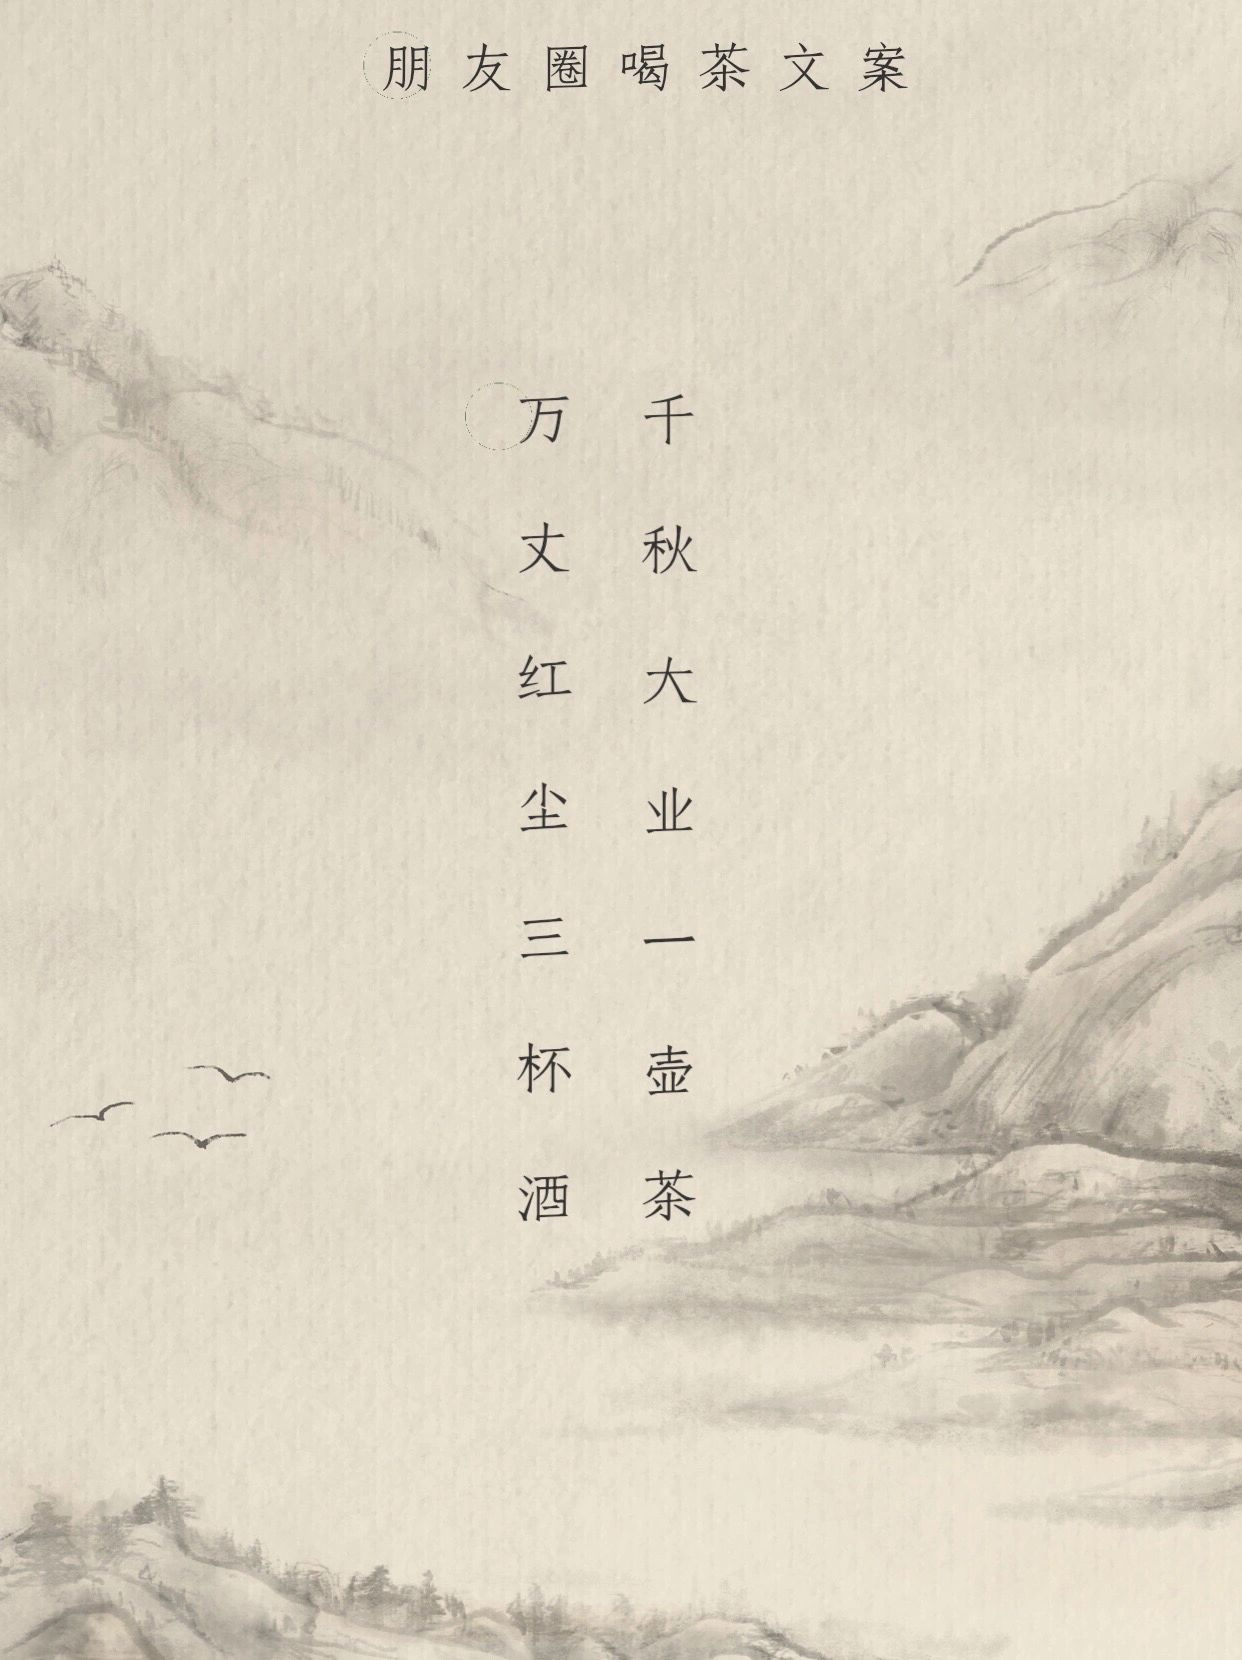 朋友圈喝茶文案
千秋大业一壶茶
万丈红尘三杯酒